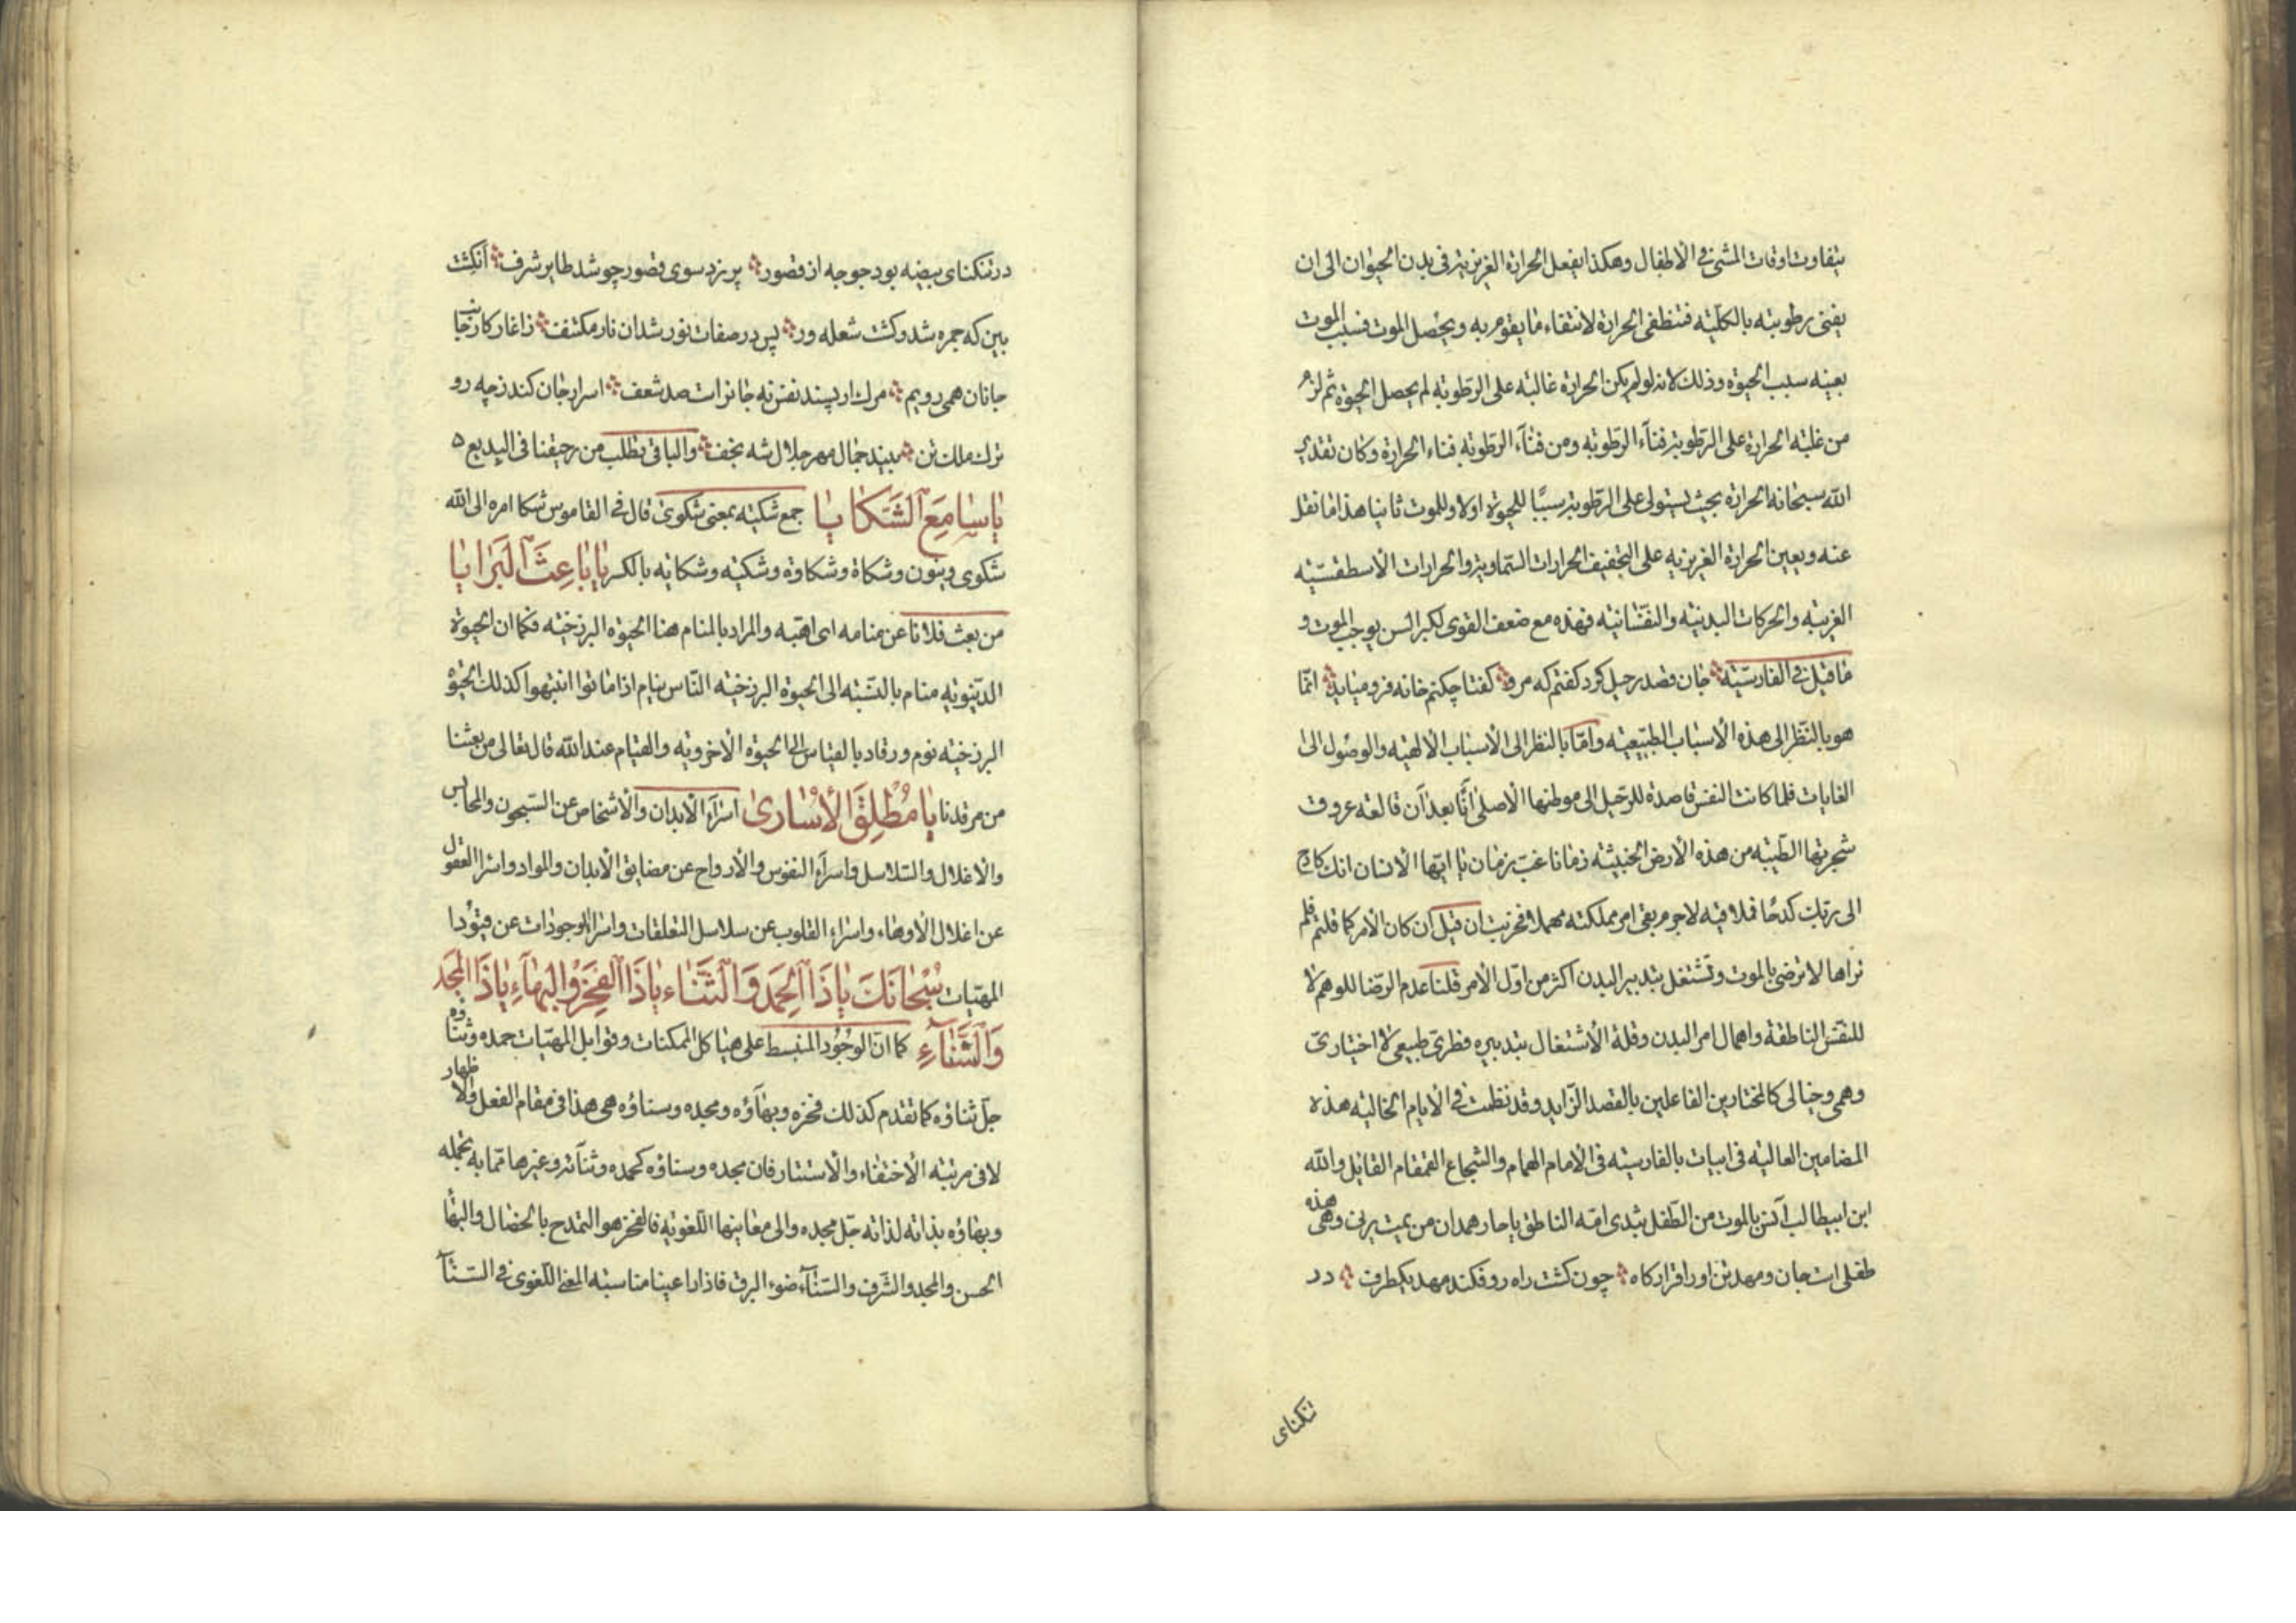 يتفاوت اوقات المشى فى الاطفال وهكذا يفعل الحرارة الغريزية فى بدن الحيوان الى ان
يفنى رطوبته بالكليّة فتنطفى الحرارة لانتفاء ما يقوم به ويحصل الموت فسبب الموت
بعينه سبب الحيوة وذلك لانه لو لم يكن الحرارة غالبة على الرطوبة لم يحصل الحيوة ثم لزم
من غلبة الحرارة على الرطوبة فناء الرطوبة ومن فناء الرطوبة فناء الحرارة وكان تقدير
الله سبحانه الحرارة بحيث يستولى على الرطوبة سببًا للحيوة اولا وللموت ثانيا هذا ما نقل
عنه ويعين الحرارة الغريزية على التجفيف الحرارات السّماوية والحرارات الاسطقسيّة
الغريبة والحركات البدنية والنفسانية فهذه مع ضعف القوى لكبر السن يوجب الموت و
ما قيل فى الفارسيّة جان قصد رحيل كرد كفتم كه مرو كفتا چكنم خانه فرو ميايد انّما
هو بالنّظر الى هذه الاسباب الطبيعية وامّا بالنظر الى الاسباب الالهية والوصول الى
الغايات فلما كانت النفس قاصدة للرحيل الى موطنها الاصلى انًّا بعد آن قالعة عروق
شجرتها الطيبة من هذه الارض الخبيثة زمانا غبّ زمان يا ايّها الانسان انك كادح
الى ربّك كدحًا فملاقيه لاجرم بقى امر مملكته مهملا فخربت ان قيل ان كان الامر كما قلتم فلم
نراها لا ترضى بالموت وتشتغل بتدبير البدن اكثر من اوّل الامر قلنا عدم الرّضا للوهم لا
للنفس الناطقة واهمال امر البدن وقلة الاشتغال بتدبيره فطرى طبيعى لا اختيارى
وهمى وخيالى كالمختارين الفاعلين بالقصد الزّايد وقد نظمت فى الايام الخالية هذه
المضامين العالية فى ابيات بالفارسية فى الامام الهمام والشجاع القمقام القايل والله
ابن ابيطالب آنس بالموت من الطّفل بثدى امّه الناطق يا حار همدان من يمت يرنى وهى هذه
طفلى است جان ومهد تن اورا قرارگاه چون كشت راه رو فكند مهد يكطرف در
تنكناى
در تنكناى بيضه بود جوجه از قصور پر زد سوى قصور چو شد طاير شرف آنكشت
بين كه جمره شد وكشت شعله ور پس در صفات نور شد ان نار مكتشف ز اغاز كار جانب
جانان همى رويم مرك ار پسند نفس نه جانراست صد شعف اسرار جان كند زچه رو
ترك ملك تن بيند جمال مهر جلال شه نجف والباقى يطلب من رحيقنا فى البديع ه
يا سامع الشكايا جمع شكيّه بمعنى شكوى قال فى القاموس شكا امره الى الله
شكوى وينون وشكاة وشكاوة وشكية وشكاية بالكسر يا باعث البرايا
من بعث فلانا عن منامه اى اهبّه والمراد بالمنام هنا الحيوة البرزخية فكما ان الحيوة
الدّنيوية منام بالنّسبة الى الحيوة البرزخية النّاس نيام اذا ماتوا انتبهوا كذلك الحيوة
البرزخية نوم ورقاد بالقياس الى الحيوة الاخروية والقيام عند الله قال تعالى من بعثنا
من مرقدنا يا مُطْلِقَ الأُسارى اسراء الابدان والاشخاص عن السّجون والمحابس
والاغلال والسّلاسل واسراء النفوس والارواح عن مضايق الابدان والمواد واسراء العقول
عن اغلال الاوهام واسراء القلوب عن سلاسل التعلقات واسراء الوجودات عن قيود
المهيّات سُبْحانَكَ يا ذَا الْحَمدِ وَالثَّناء يا ذَا الفَخْرِ وَالبَهاءِ يا ذَا المجد
وَالسَّناءِ كما انّ الوجود المنبسط على هياكل الممكنات وقوابل المهيّات حمده وثناؤه
جلّ ثناؤه كما تقدم كذلك فخره وبهاؤه ومجده وسناؤه هى هذا فى مقام الفعل والاظهار
لا فى مرتبة الاختفاء والاستتار فان مجده وسناؤه كحمده وثنائه وغيرها ممّا به تجمله
وبهاؤه بذاته لذاته جلّ مجده والى معانيها اللّغوية فالفخر هو التمدح بالخصال والبهاء
الحسن والمجد والشّرف والسّناء ضوء البرق فاذا راعينا مناسبة المعنى اللّغوى فى السّناء